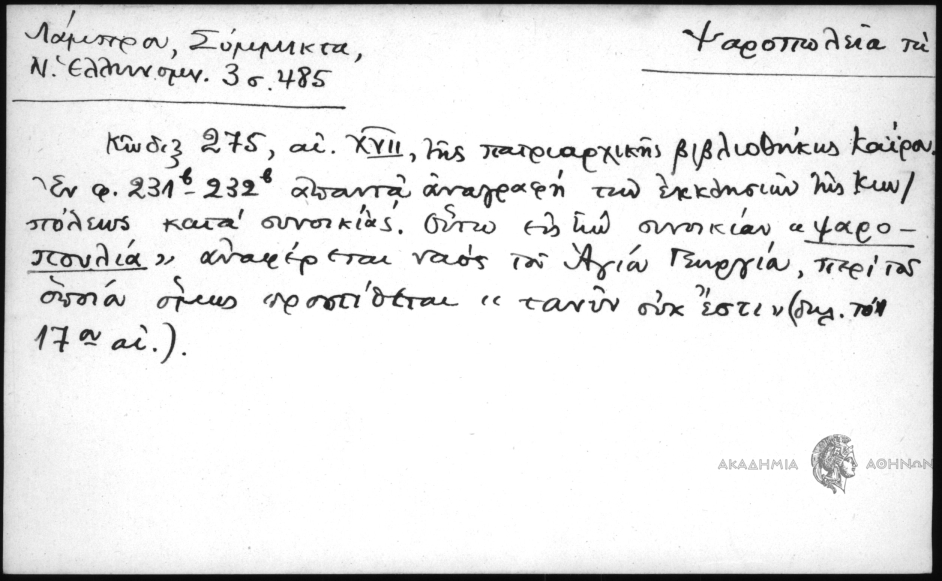 Λάμπρου, Σύμμικτα,
Ν. Ἑλληνομν. 3 σ. 485
Ψαροπωλεῖα τὰ
Κῶδιξ 275, αἰ. XVII, τῆς πατριαρχικῆς βιβλιοθήκης Καΐρου.
Ἐν φ. 231β - 232β ἀπαντᾷ ἀναγραφὴ τῶν ἐκκλησιῶν τῆς Κων/
πόλεως κατὰ συνοικίας. Οὕτω εἰς τὴν συνοικίαν «ψαρο-
πουλιά» ἀναφέρεται ναὸς τοῦ Ἁγίου Γεωργίου, περὶ τοῦ
ὁποίου ὅμως προστίθεται «τανῦν οὐκ ἔστιν» (δηλ. τὸν
17ον αἰ.).
ΑΚΑΔΗΜΙΑ ΑΘΗΝΩΝ